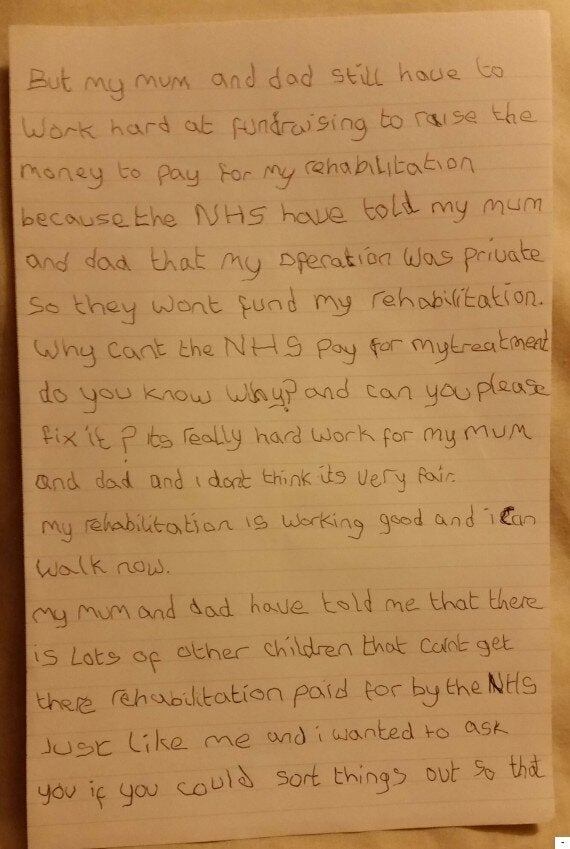 But my mum and dad still have to
Work hard at fundraising to raise the
money to pay for my rehabilitation
because the NHS have told my mum
and dad that my operation was private
so they wont fund my rehabilitation.
Why cant the NHS pay for my treatment
do you know why? and can you please
fix it? its really hard work for my mum
and dad and i dont think its very fair.
my rehabilitation is working good and i can
walk now.
my mum and dad have told me that there
is Lots of other children that cant get
there rehabilitation paid for by the NHS
Just like me and i wanted to ask
you if you could sort things out so that